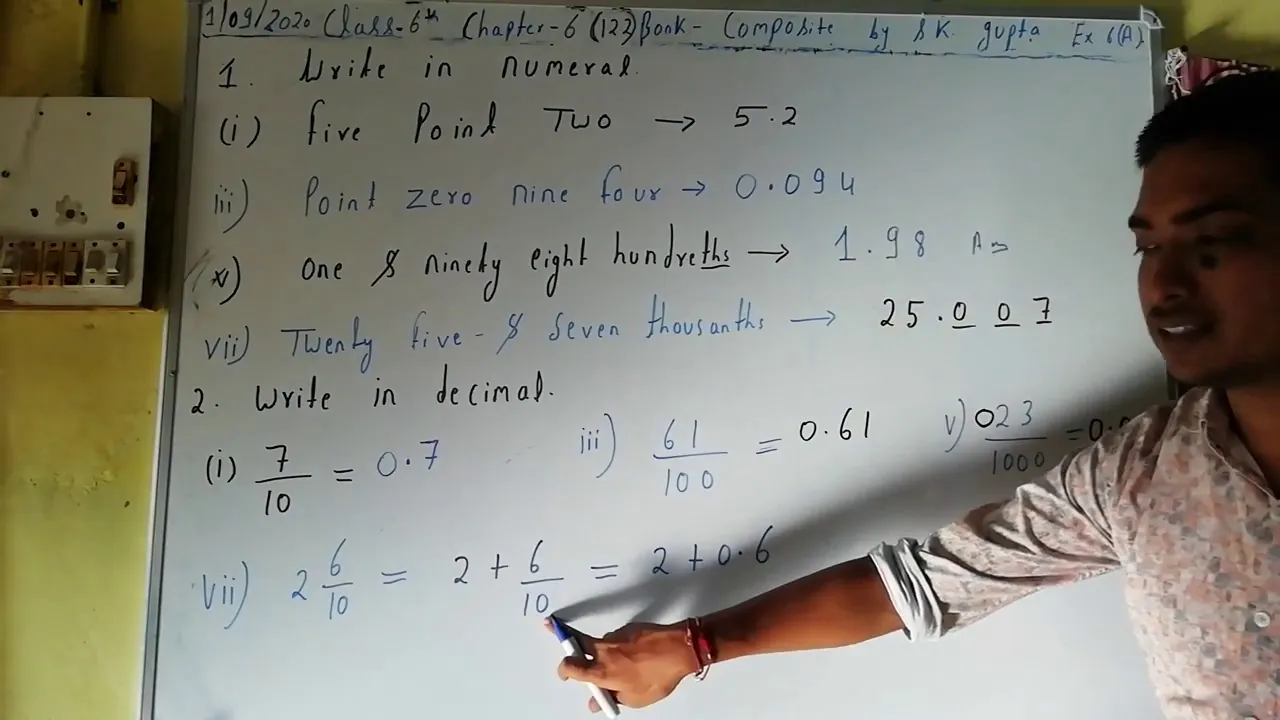 1/09/2020 Class-6th Chapter-6 (122) Book- Composite by S.K. gupta Ex 6(A)
1. Write in numeral.
(i) five Point Two → 5.2
iii) Point zero nine four → 0.094
v) One & ninety eight hundreths → 1.98 Ans
vii) Twenty five - & Seven thousanths → 25.007
2. Write in decimal.
(i) 7/10 = 0.7 iii) 61/100 = 0.61 v) 023/1000 = 0.0
vii) 2 6/10 = 2 + 6/10 = 2 + 0.6